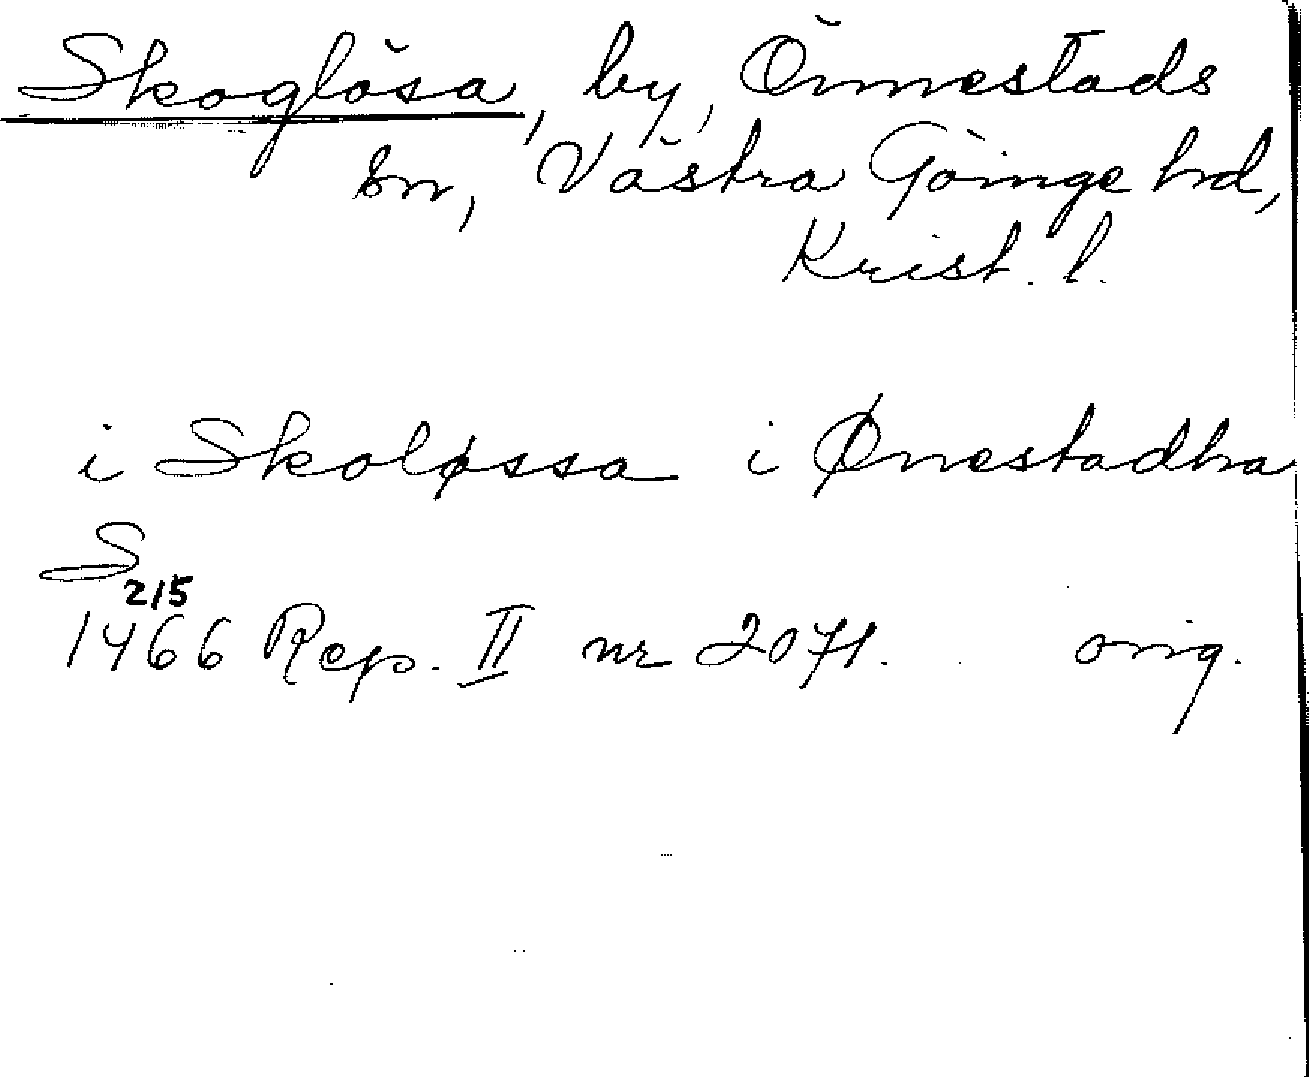 Skoglösa, by, Önnestads
sn, Västra Göinge hd,
Krist. l.
i Skoløssa i Ønestadha
S
2/5
1466 Rep. II nr 2071. orig.